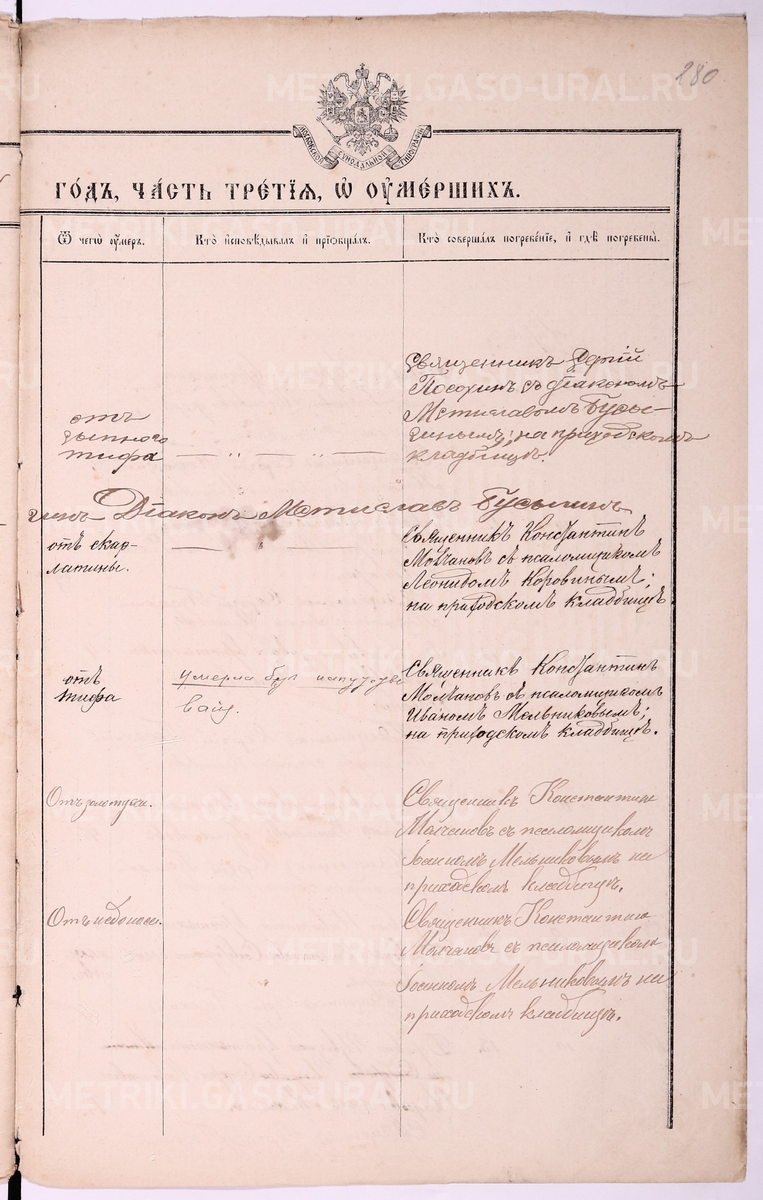 280
МОСКОВСКОЙ СѴНОДАЛЬНОЙ ТИПОГРАФІИ
ГО́ДЪ, ЧА́СТЬ ТРЕ́ТІѦ, Ѡ ОУ҆МЕ́РШИХЪ.
Ѿ чегѡ̀ оу҆́меръ.
Кто̀ и҆сповѣ́дывалъ и҆ прїѡбща́лъ.
Кто̀ соверша́лъ погребе́нїе, и҆ гдѣ̀ погребены̀.
отъ
сыпного
тифа
Священникъ Сергій
Посохинъ съ діакономъ
Мстиславомъ Бусы-
гинымъ; на приходскомъ
кладбищѣ.
Діаконъ Мстиславъ Бусыгинъ
отъ скар-
латины.
Священникъ Константинъ
Молчановъ съ псаломщикомъ
Леонидомъ Коровинымъ;
на приходскомъ кладбищѣ.
отъ
тифа
умерла безъ напутство
ванія.
Священникъ Константинъ
Молчановъ съ псаломщикомъ
Иваномъ Мельниковымъ;
на приходскомъ кладбищѣ.
Отъ золотухи.
Священникъ Константинъ
Молчановъ съ псаломщикомъ
Іоанномъ Мельниковымъ на
приходскомъ кладбищѣ.
Священникъ Константинъ
Молчановъ съ псаломщикомъ
Іоанномъ Мельниковымъ на
приходскомъ кладбищѣ.
METRIKI.GASO-URAL.RU